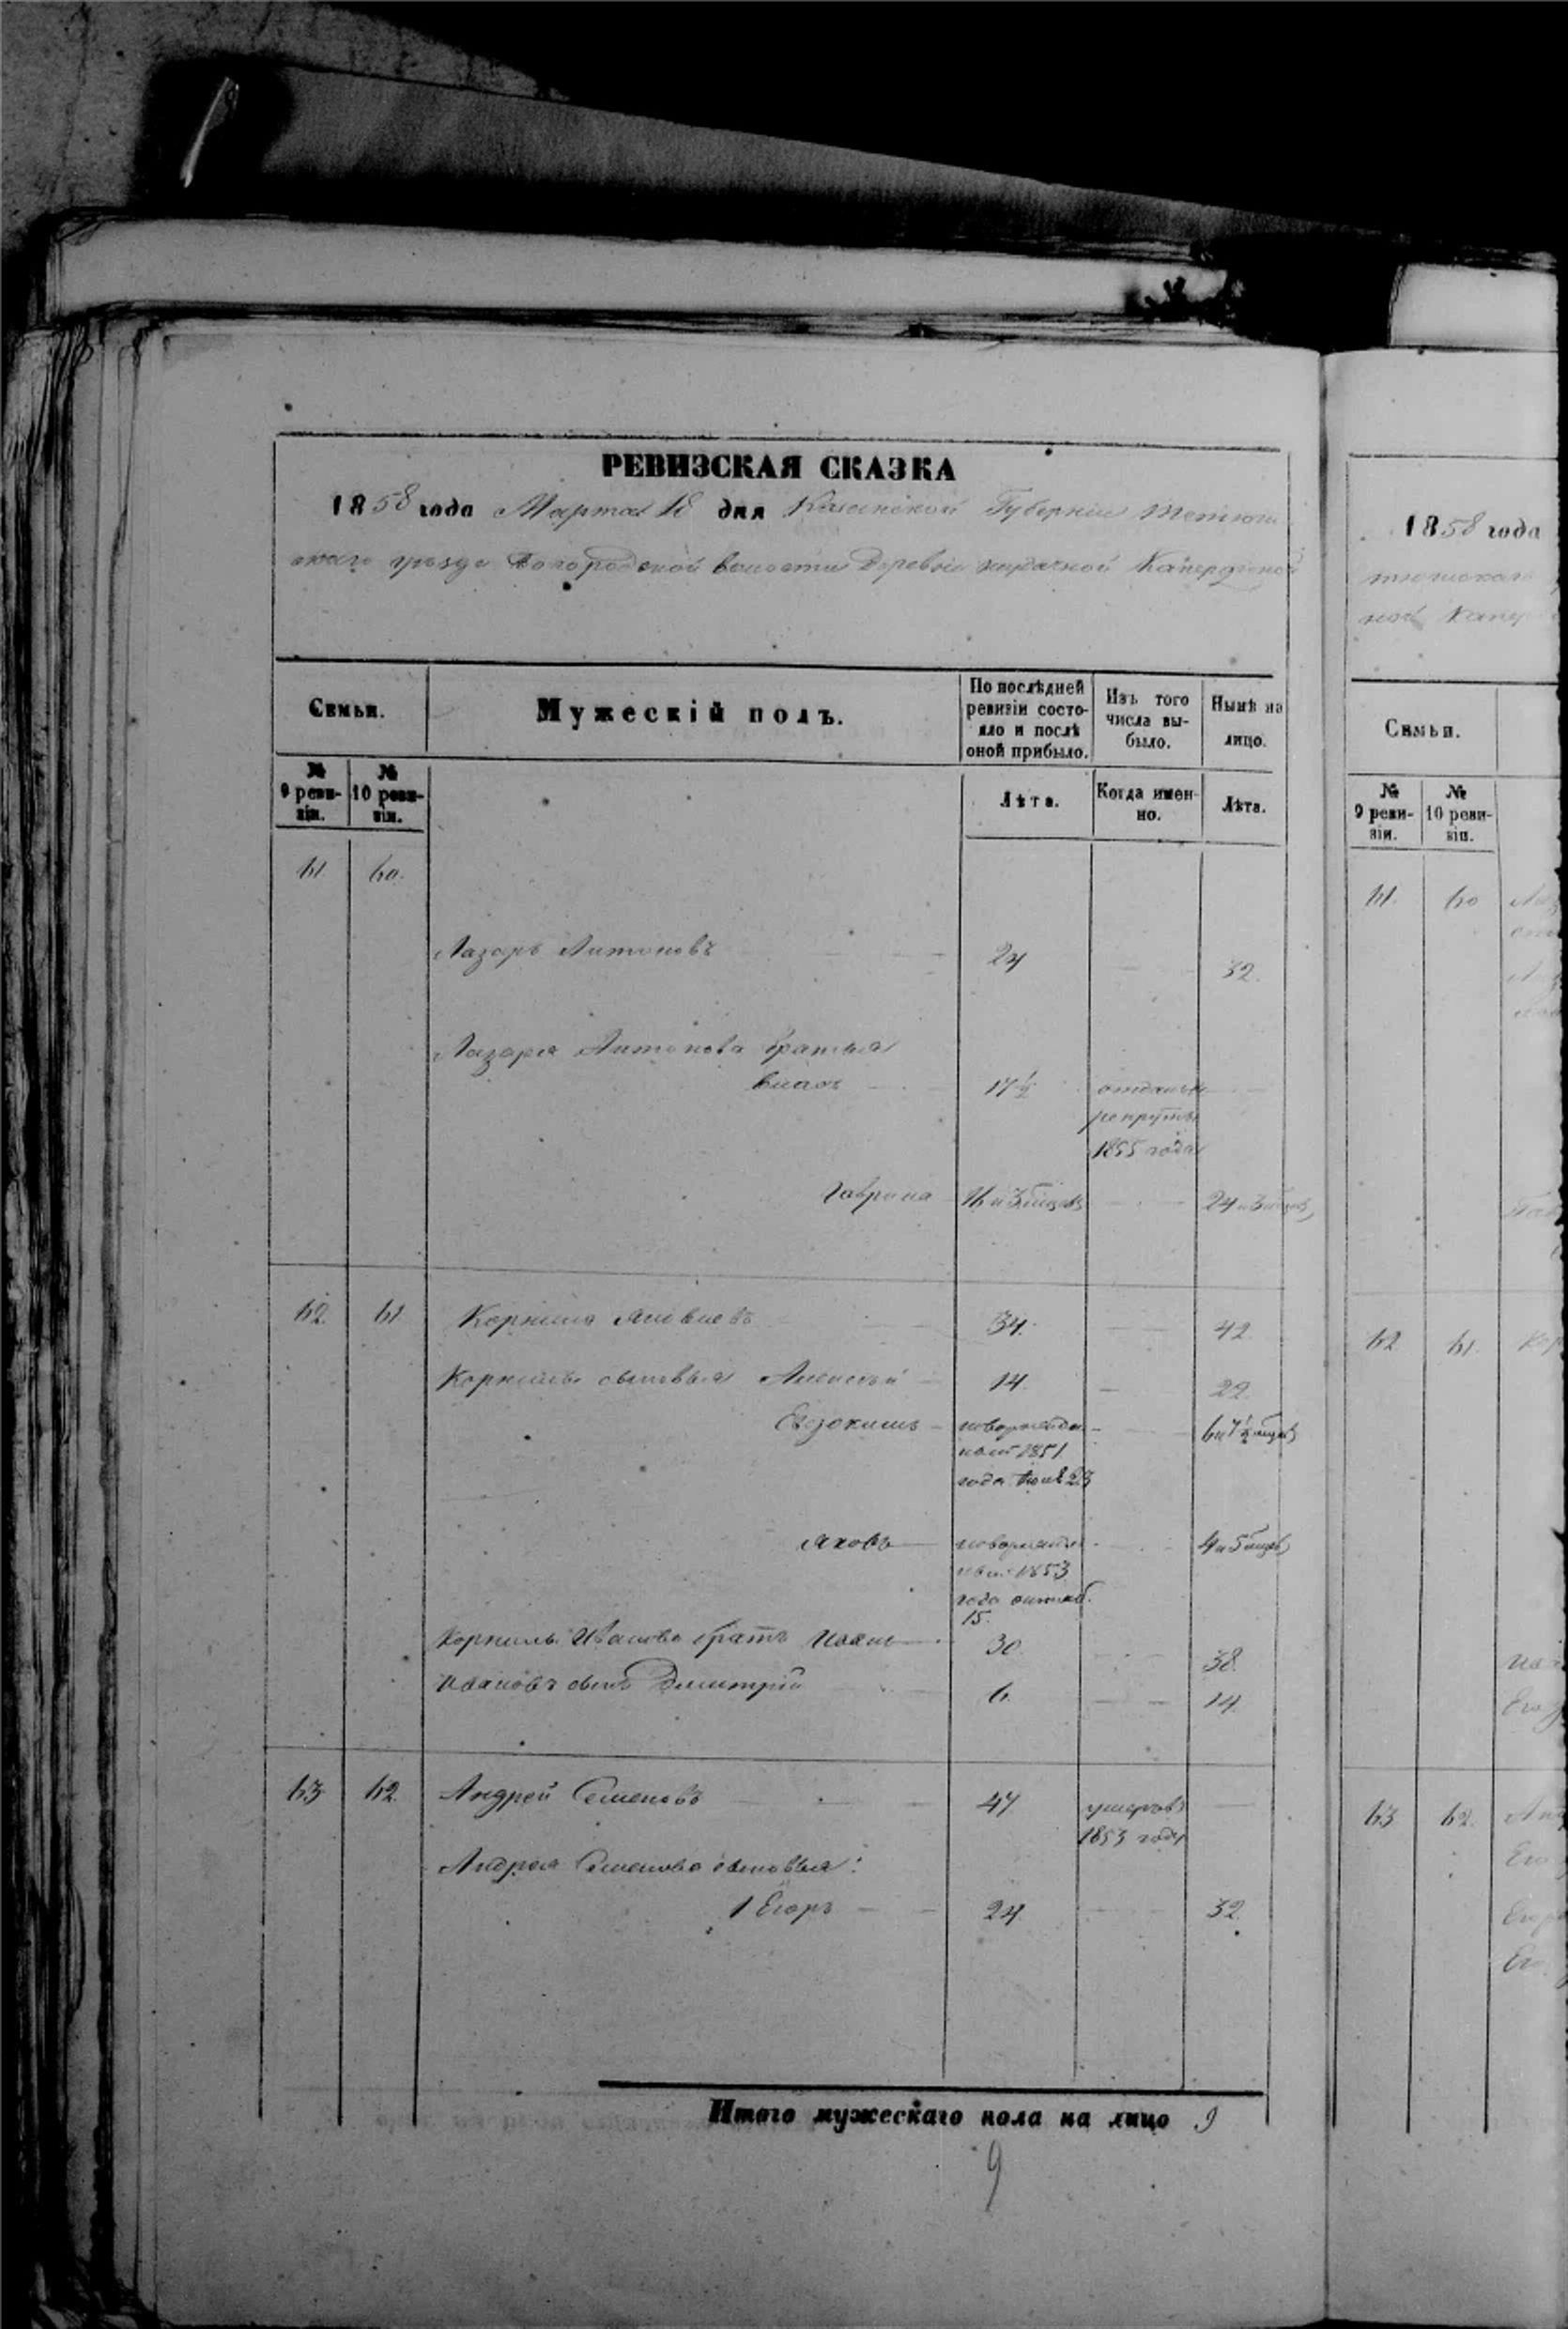 РЕВИЗСКАЯ СКАЗКА
1858 года Марта 18 дня Казанской Губернiи Тетюш
скаго уѣзда Богородской волости Деревни
Семьи.
Мужескiй полъ.
По послѣдней ревизiи состояло и послѣ оной прибыло.
Изъ того числа выбыло.
Нынѣ на лицо.
№ 9 ревизiи.
№ 10 ревизiи.
Лѣта.
Когда именно.
Лѣта.
61. 60.
Лазарь Антоновъ 24 32.
Лазаря Антонова братья
Власъ 17½ отданъ въ
рекруты
1855 года
Гаврила 16 и 3 мѣсяц 24 и 3 мѣсяц
62. 61 Корнила 34. 42
Корнилы сыновья Алексѣй 14. 22.
Евдокимъ новорожден
ной 1851
года Июля 23
6 и 7½ мѣсяц
Яковъ новорожден
ной 1853
года октяб.
15.
4 и 5 мѣсяц
Корнилы Иванова братъ Иванъ 30. 38.
Ивановъ сынъ Димитрiй 6. 14.
63 62. Андрей Семеновъ 47 умеръ въ
1853 году
Андрея Семенова сыновья:
1 Егоръ 24. 32.
Итого мужескаго пола на лицо 9
9
1858 года
Семьи.
№ 9 ревизiи.
№ 10 ревизiи.
61. 60
62 61.
63 62.